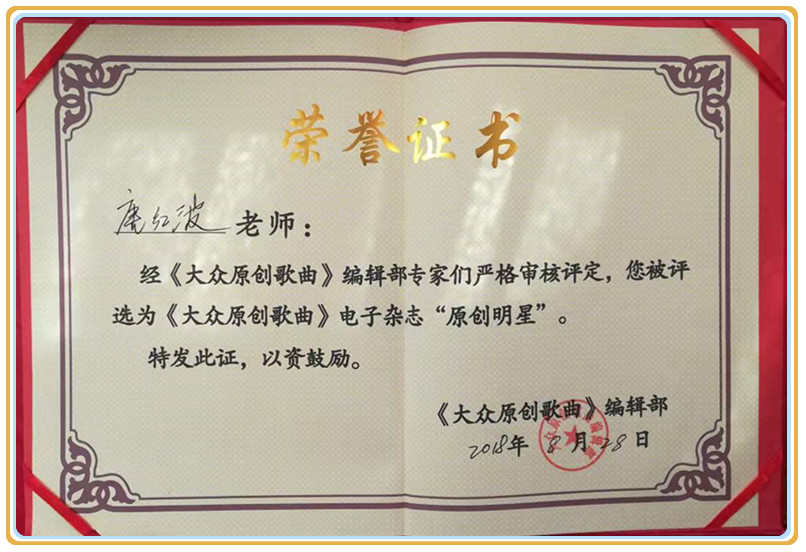 荣誉证书
唐红波 老师：
经《大众原创歌曲》编辑部专家们严格审核评定，您被评
选为《大众原创歌曲》电子杂志“原创明星”。
特发此证，以资鼓励。
《大众原创歌曲》编辑部
2018年 8月28日